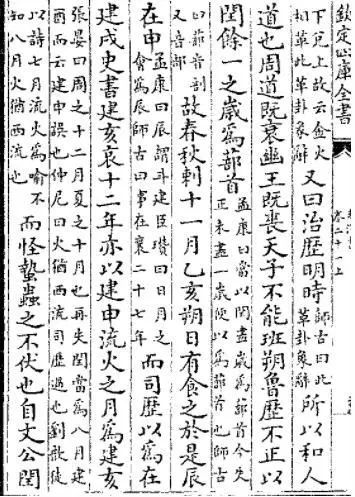 欽定四庫全書
卷二十一上
下兌上故云金火
相革此革卦彖辭
又曰治歷明時
師古曰此
革卦象辭
所以和人
道也周道既衰幽王既喪天子不能班朔魯歷不正以
閏餘一之歲為部首
孟康曰當以閏盡歲為蔀首今失
正未盡一歲便以為蔀首也師古
曰蔀音剖
又音部
故春秋刺十一月乙亥朔日有食之於是辰
在申
孟康曰辰謂斗建臣瓚曰日月之
會為辰師古曰事在襄二十七年
而司歷以為在
建戌史書建亥哀十二年亦以建申流火之月為建亥
張晏曰周之十二月夏之十月也再失閏當為八月建
酉而云建申誤也仲尼曰火猶西流司歷過也劉歆徒
以詩七月流火為喻不
知八月火猶西流也
而怪蟄蟲之不伏也自文公閏